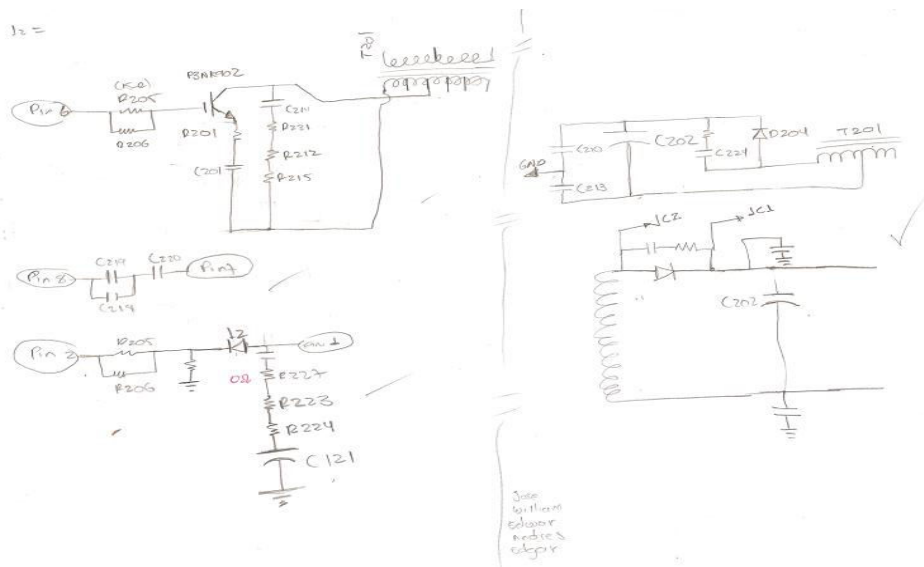 (15Ω)
R205
Pin 6
R206
R201
C201
C211
R221
R212
R215
Pin 8
C219
C219
C220
Pin 7
Pin 2
R205
R206
0Ω
R227
R223
R224
C121
GND
C210
C213
C202
C224
D204
T201
IC2
IC1
C202
Jose
William
Edwar
Andres
Edgar